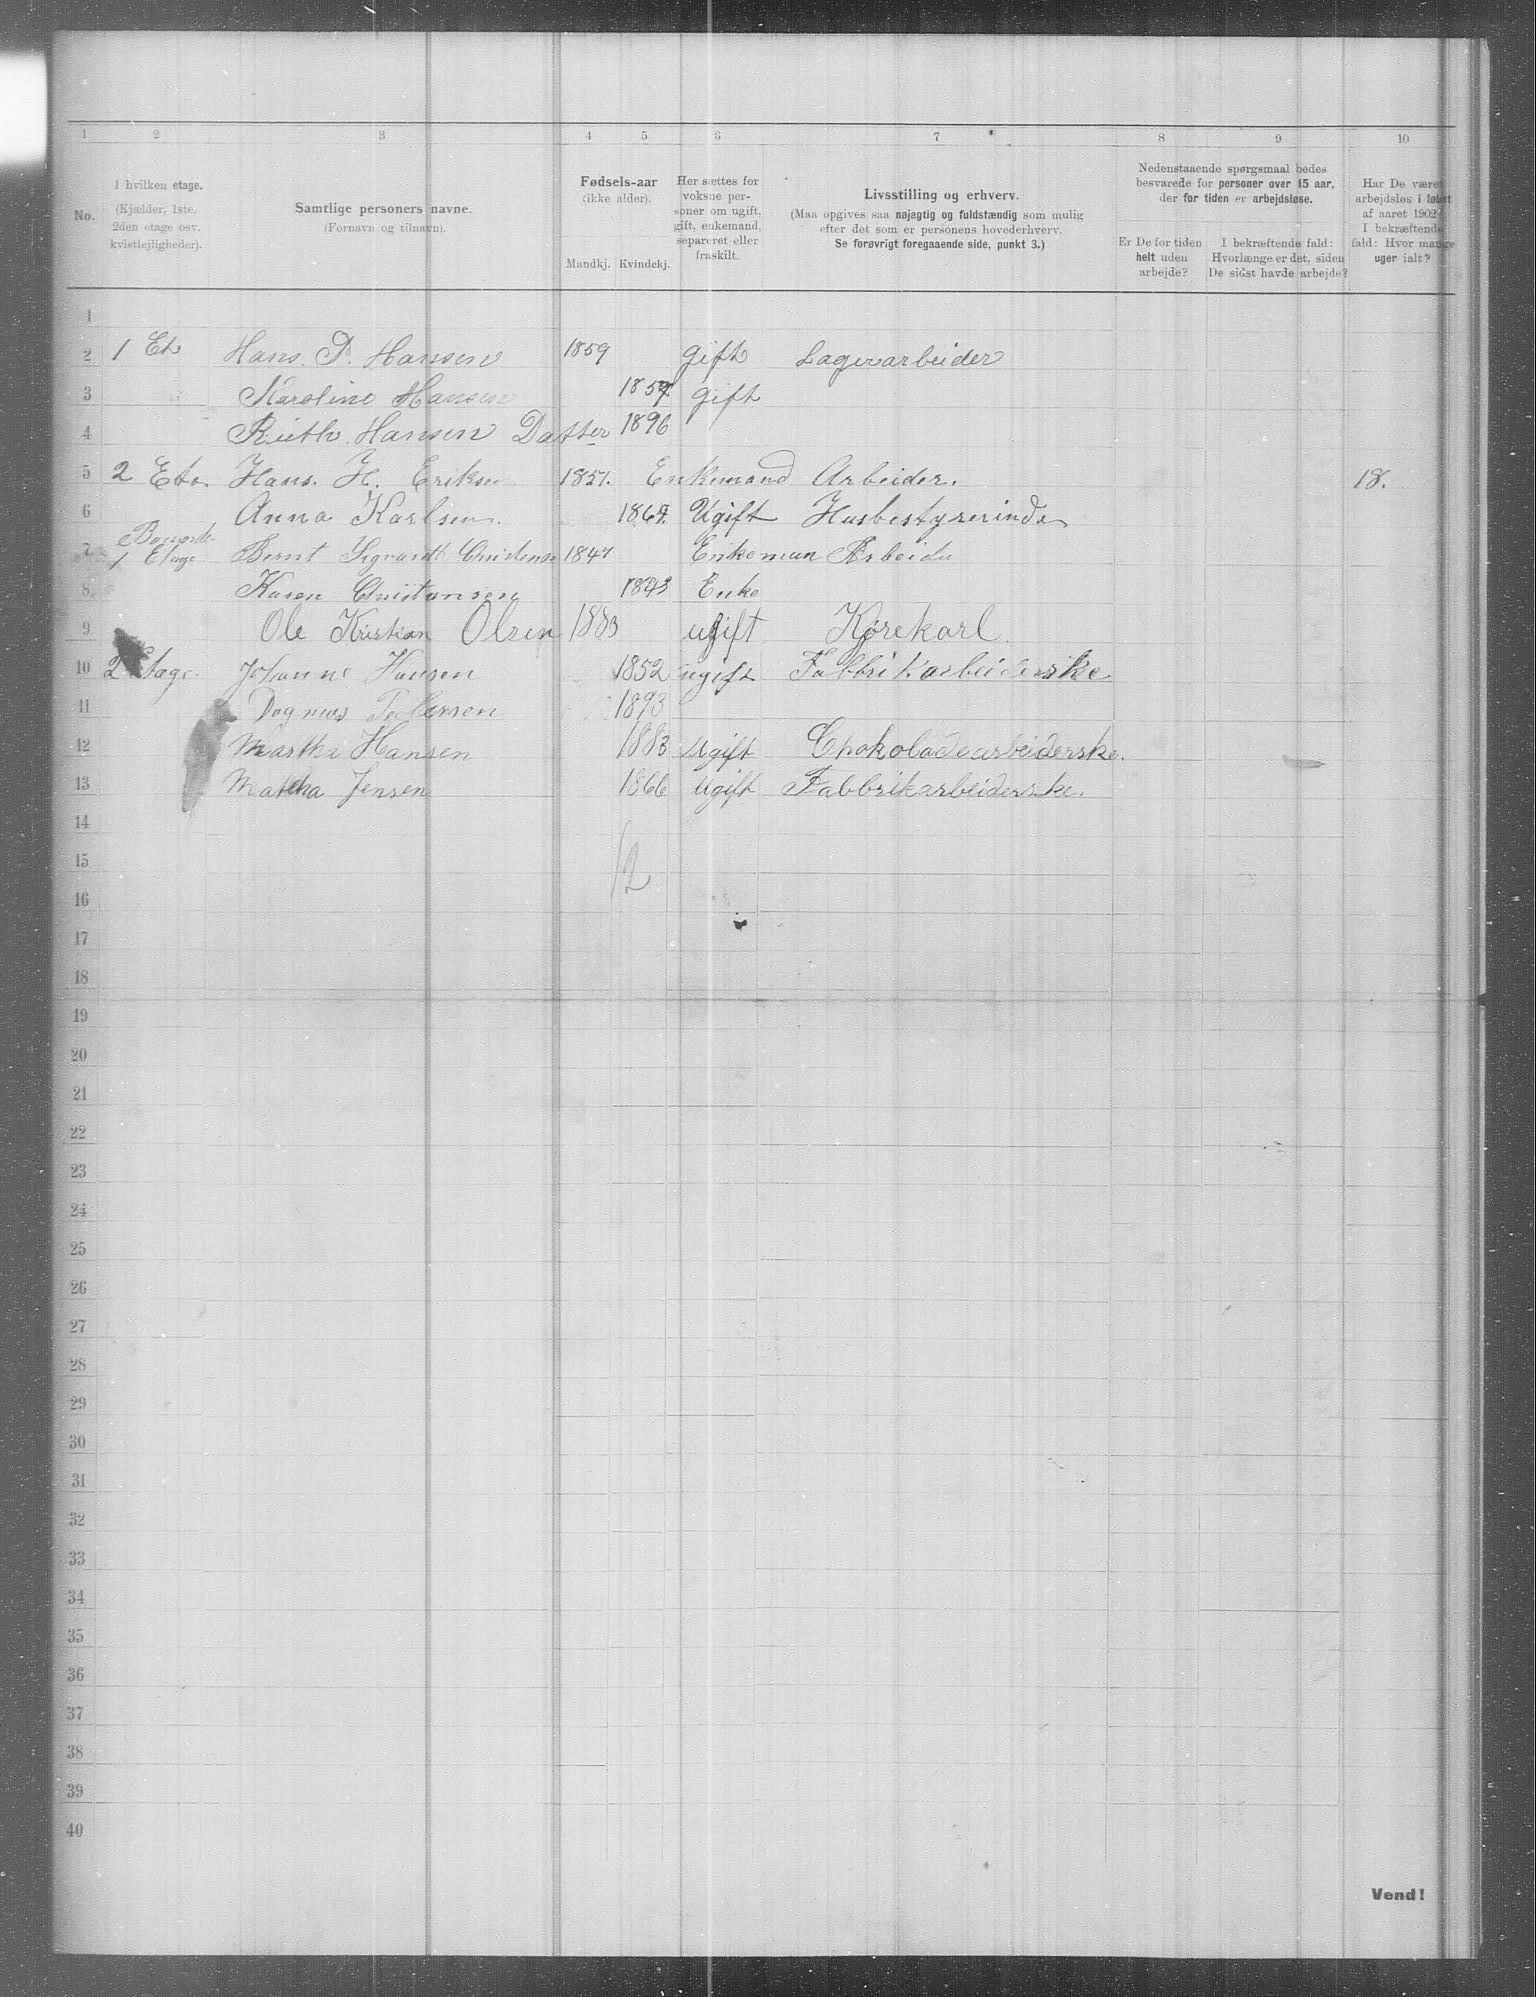 1 2 3 4 5 6 7 8 9 10
No.
I hvilken etage.
(Kjælder, 1ste,
2den etage osv.
kvistlejligheder).
Samtlige personers navne.
(Fornavn og tilnavn).
Fødsels-aar
(ikke alder).
Mandkj. Kvindekj.
Her sættes for
voksne per-
soner om ugift,
gift, enkemand,
separeret eller
fraskilt.
Livsstilling og erhverv.
(Maa opgives saa nøjagtig og fuldstændig som mulig
efter det som er personens hovederhverv.
Se forøvrigt foregaaende side, punkt 3.)
Nedenstaaende spørgsmaal bedes
besvarede for personer over 15 aar,
der for tiden er arbejdsløse.
Er De for tiden
helt uden
arbejde?
I bekræftende fald:
Hvorlænge er det, siden
De sidst havde arbejde?
Har De været
arbejdsløs i løbet
af aaret 1902?
I bekræftende
fald: Hvor mange
uger ialt?
1
2 1 Et. Hans. P. Hansen 1859 gift Lagerarbeider
3 Karoline Hansen gift
4 Ruth. Hansen Datter 1896
5 2 Eta. Hans. H. Eriksen 1857. Enkemand Arbeider. 18.
6 Anna Karlsen. Ugift Husbestyrerinde
7 1 Etage Bernt Sigvardt Christense 1847 Enkeman Arbeider
8 Karen Christansen 1843 Enke
9 Ole Kristian Olsen 1883 ugift Kjørekarl.
10 2 Etage. Johanne Hansen 1852 ugift Fabbrikarbeiderske
11 Dagmar Pedersen 1893
12 Martha Hansen 1883 Ugift Chokoladearbeiderske.
13 Matha Jensen 1866 Ugift Fabbrikarbeiderske.
14
15
12
16
17
18
19
20
21
22
23
24
25
26
27
28
29
30
31
32
33
34
35
36
37
38
39
40
Vend!